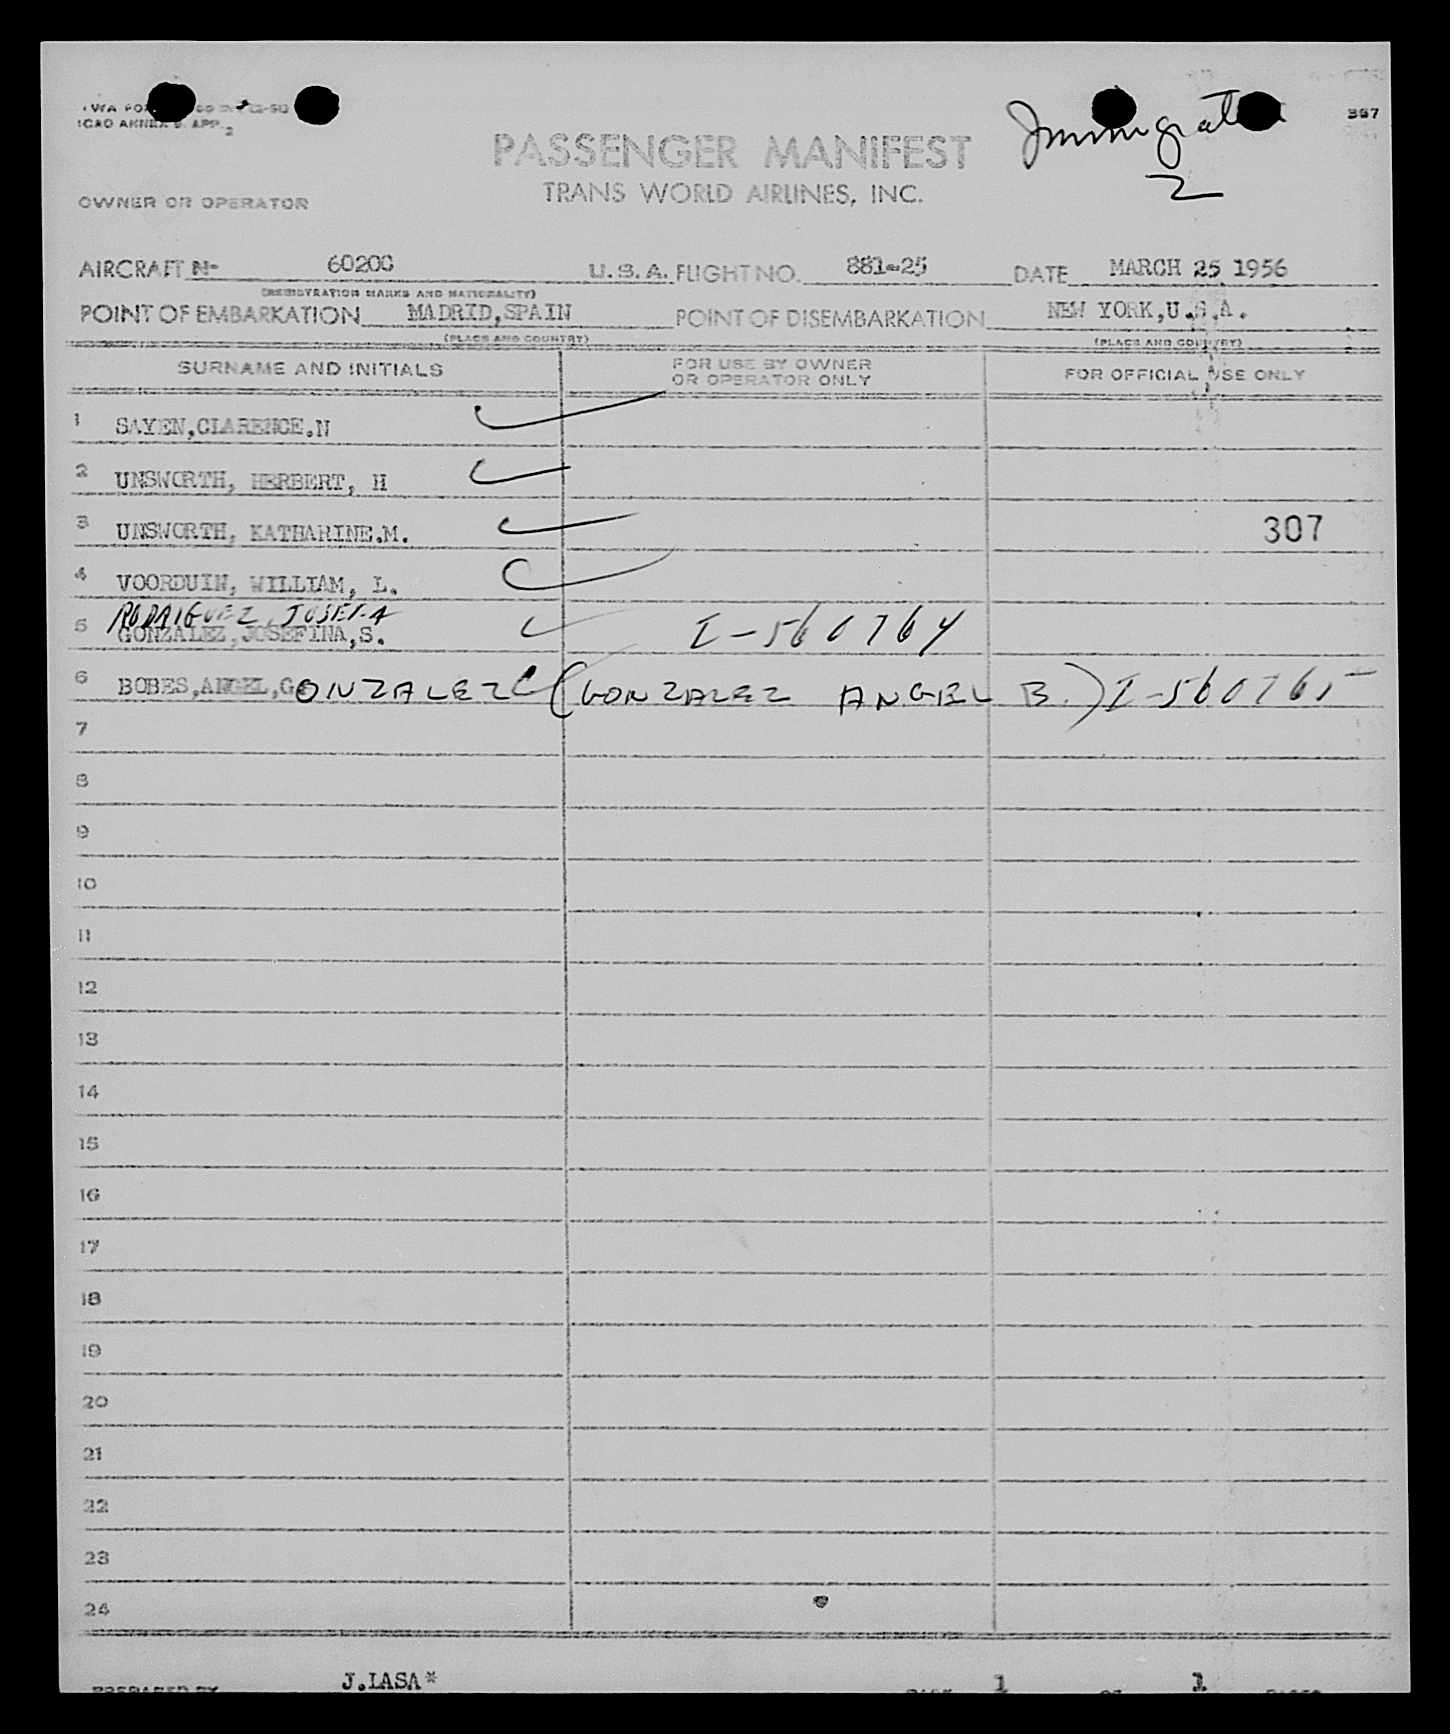 ICAO ANNEX 9, APP. 2
367
Immigration
2
PASSENGER MANIFEST
TRANS WORLD AIRLINES, INC.
OWNER OR OPERATOR
AIRCRAFT N- 6020C U.S.A. FLIGHT NO. 881-25 DATE MARCH 25 1956
(REGISTRATION MARKS AND NATIONALITY)
POINT OF EMBARKATION MADRID,SPAIN POINT OF DISEMBARKATION NEW YORK,U.S.A.
(PLACE AND COUNTRY) (PLACE AND COUNTRY)
SURNAME AND INITIALS FOR USE BY OWNER OR OPERATOR ONLY FOR OFFICIAL USE ONLY
1 SAYEN,CLARENCE.N
2 UNSWORTH, HERBERT, H
3 UNSWORTH, KATHARINE.M. 307
4 VOORDUIN, WILLIAM, L.
RODRIGUEZ, JOSEFA
5 GONZALEZ,JOSEFINA,S. I-560764
6 BOBES,ANGEL,GONZALEZ (GONZALEZ ANGEL B.) I-560765
7
8
9
10
11
12
13
14
15
16
17
18
19
20
21
22
23
24
PREPARED BY J.LASA* PAGE 1 OF 1 PAGES